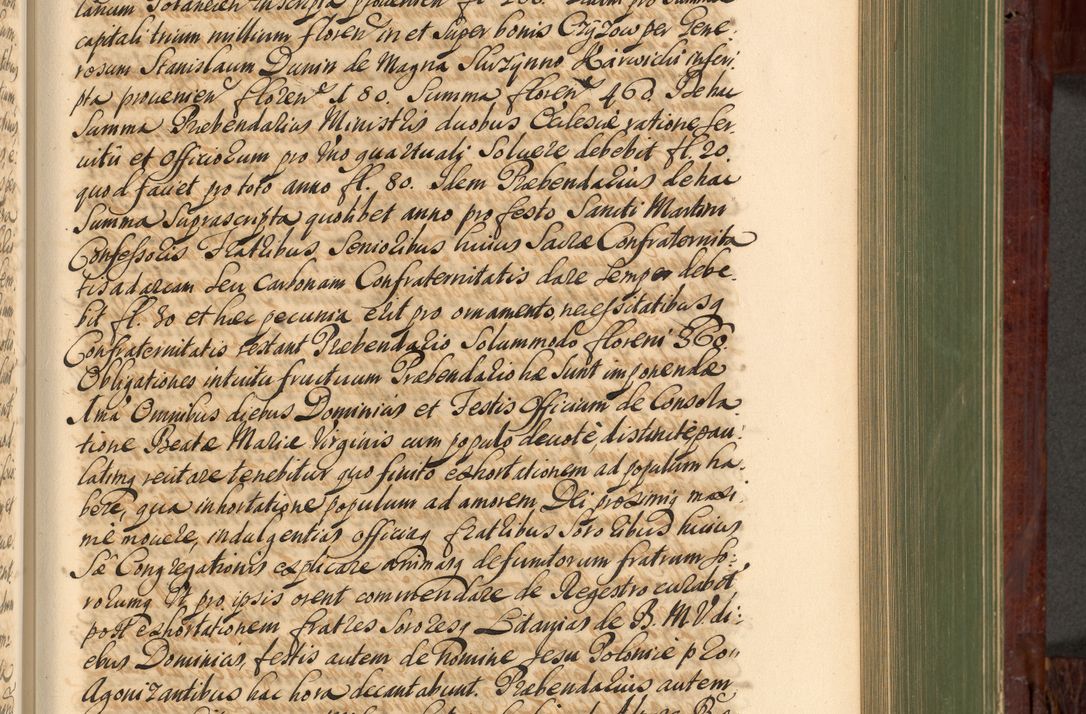 capitali trium millium floren in et super bonis Czyzow per Gene
rosum Stanislaum Dunin de Magna Skrzynno Karwicki inscri
pta provenien floren 180. Summa floren 460. De hac
Summa Præbendarius Ministris duobus Ecclesiæ ratione ser
vitii et officiorum pro uno quartuali Solvere debebit fl. 20.
quod faciet pro toto anno fl. 80. Idem Præbendarius de hac
Summa Suprascripta quolibet anno pro festo Sancti Martini
Confessoris Fratribus Senioribus huius Sacræ Confraternita
tis ad arcam seu Carbonam Confraternitatis dare semper debe
bit fl. 20 et hæc pecunia erit pro ornamento, necessitatibusq
Confraternitatis restant Præbendario Solummodo floreni 360.
Obligationes intuitu fructuum Præbendario hæ Sunt imponendæ
1ma Omnibus diebus Dominicis et Festis Officium de Consola
tione Beatæ Mariæ Virginis cum populo devotè, distinctè, pau
latimq recitare tenebitur quo finito exhortationem ad populum ha
bere, qua inhortatione populum ad amorem, Dei, proximiq maxi
mè movere, indulgentias officiaq fratribus Sororibus huius
Sæ Congregationis explicare animasq defunctorum fratrum so
rorumq Ut pro ipsis orent commendare de Regestro curabit
post exhortationem fratres Sororesq Litanias de B. M. V. di
ebus Dominicis, festis autem de Nomine Jesu Polonice pro
Agonizantibus hac hora decantabunt. Præbendarius autem